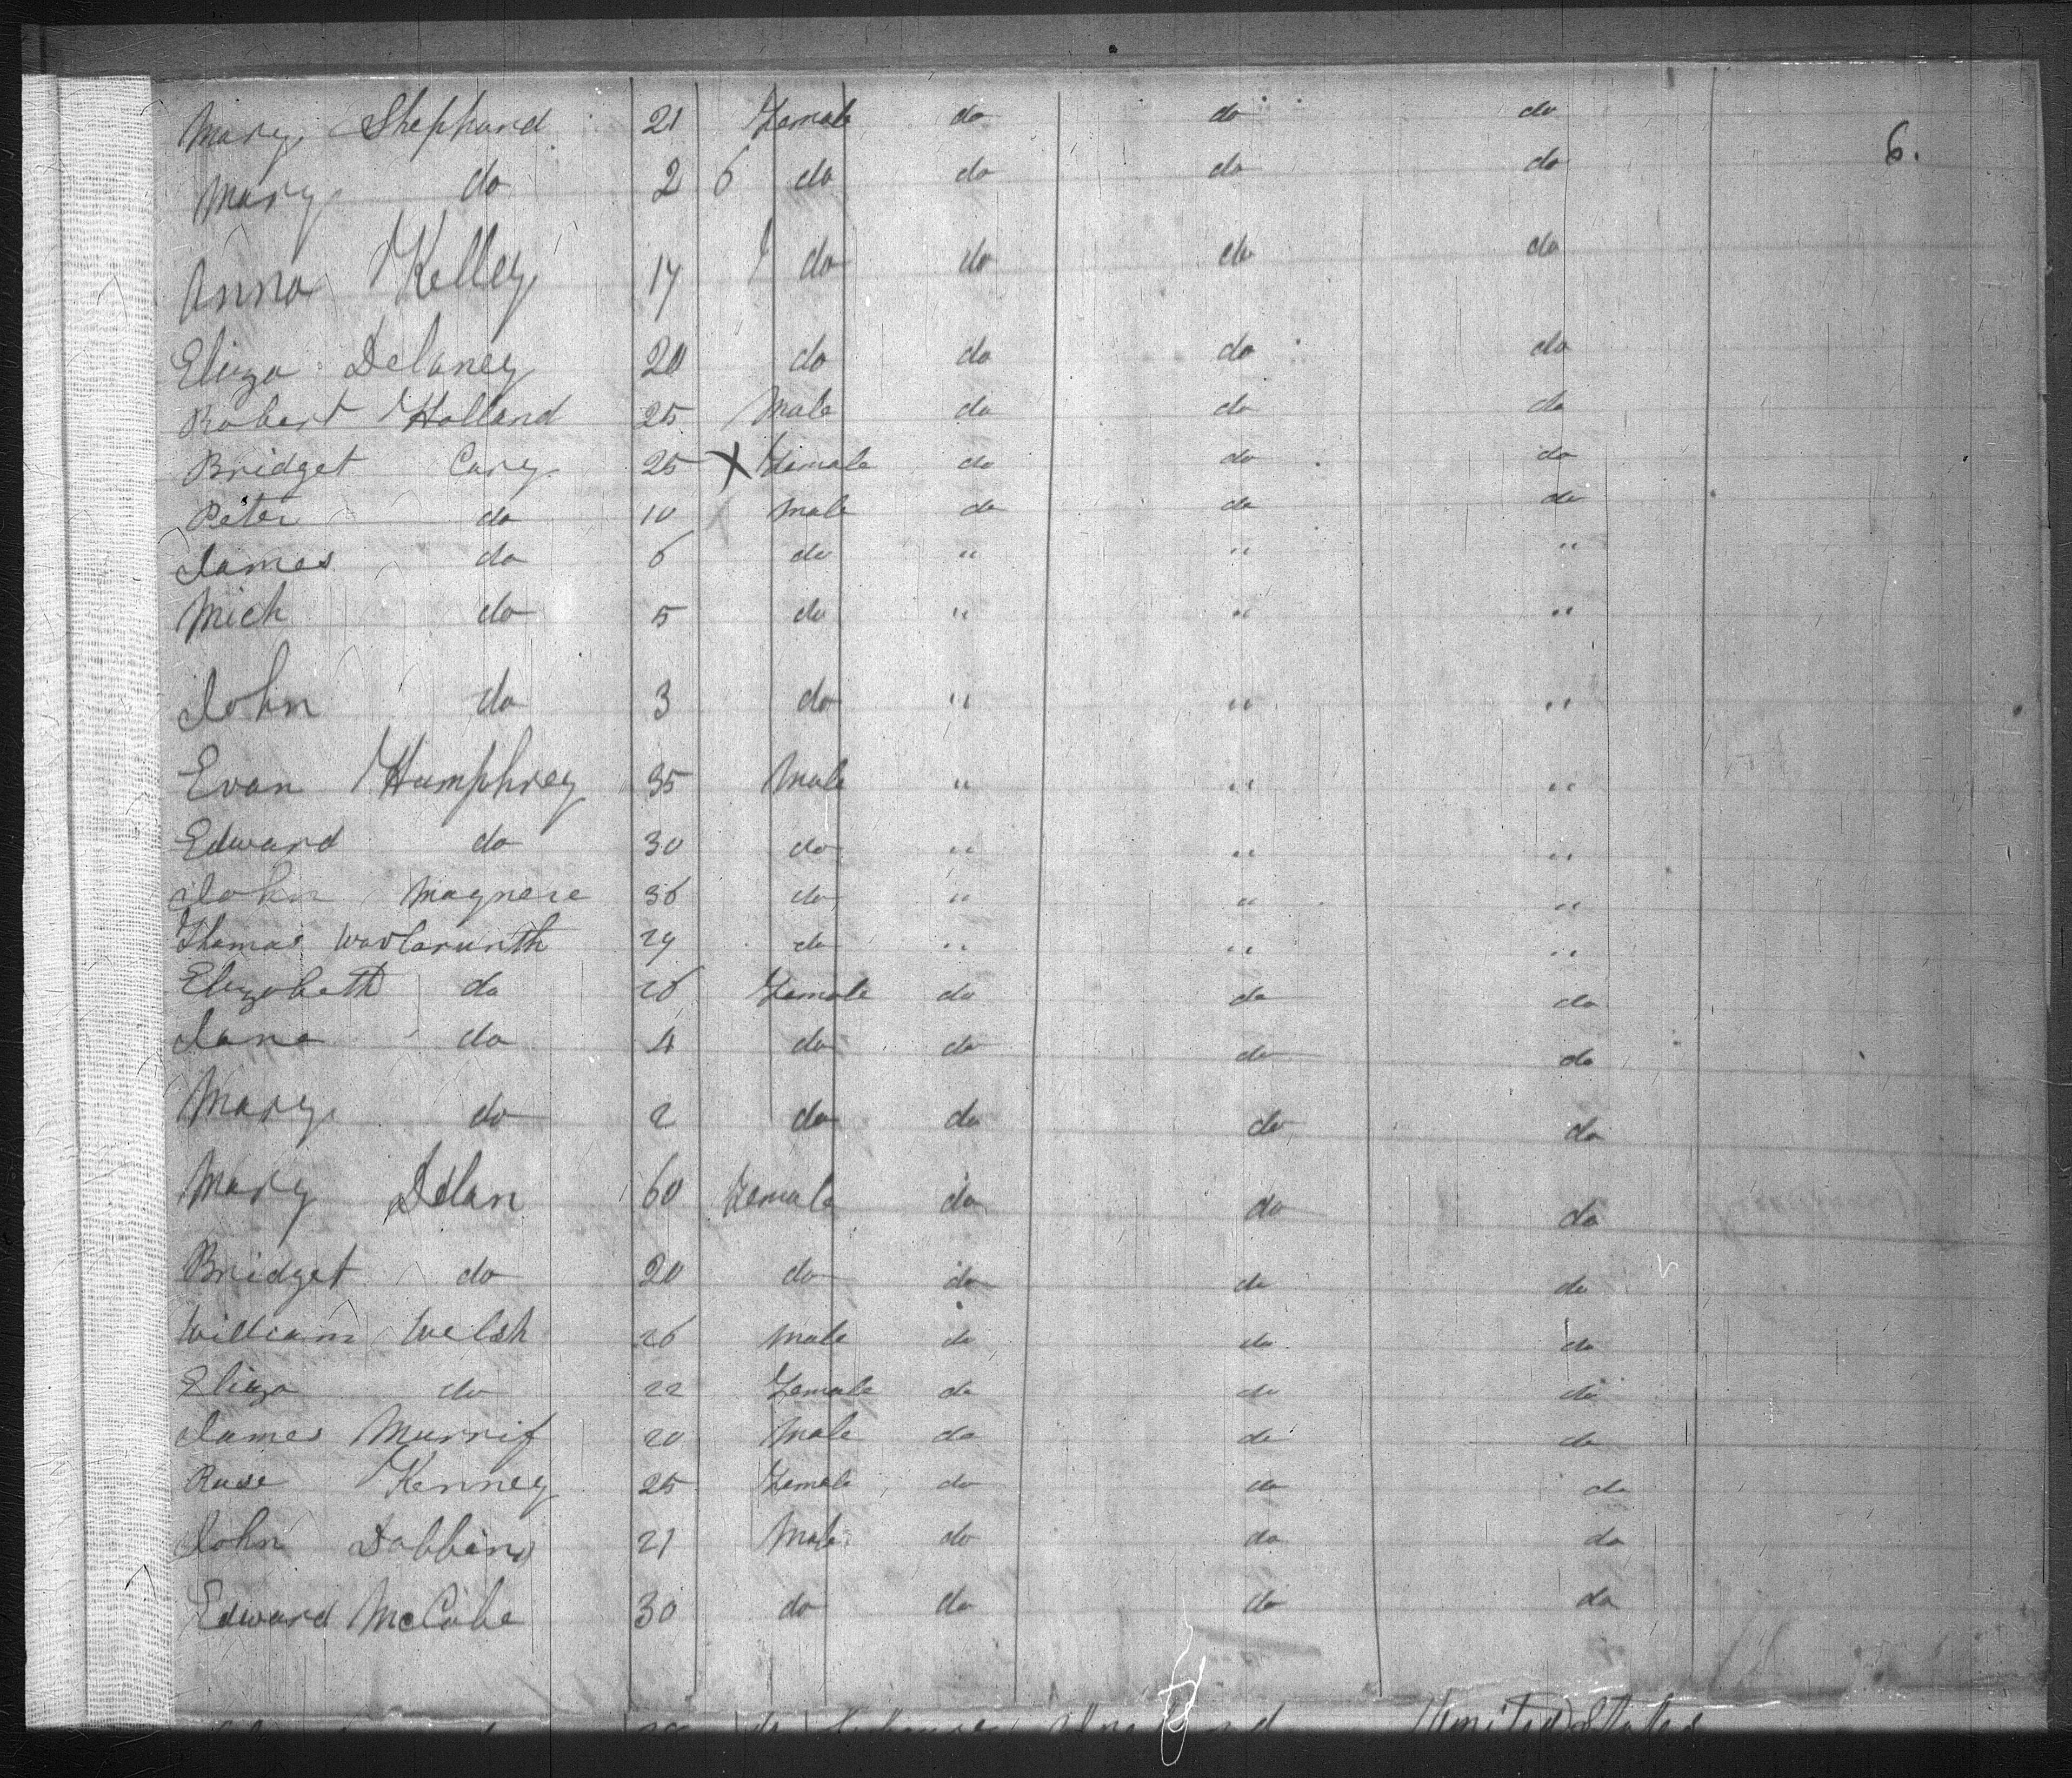 6.
Mary Shephard 21 Female do do do
Mary do 2 6 do do do do
Anna Kelley 17 do do do do
Eliza Delaney 20 do do do do
Robert Holland 25 Male do do do
Bridget Cary 25 X Female do do do
Peter do 10 Male do do do
James do 6 do " " "
Mich do 5 do " " "
John do 3 do " " "
Evan Humphrey 35 Male " " "
Edward do 30 do " " "
John Magnere 36 do " " "
Thomas 29 do " " "
Elizabeth do 26 Female do do do
Jane do 4 do do do do
Mary do 2 do do do do
Mary Dolan 60 Female do do do
Bridget do 20 do do do do
William Welsh 26 Male do do do
Eliza do 22 Female do do do
James 20 Male do do do
Rose Kenney 25 Female do do do
John Dobbins 21 Male do do do
Edward McCabe 30 do do do do
United States